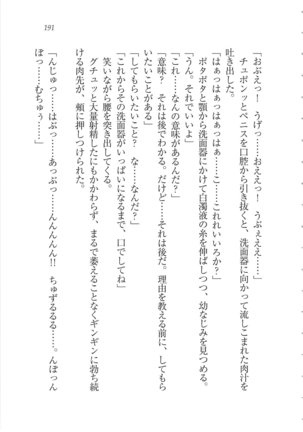 191
「おぶえっ！　うげっ……おええっ！　うぶぇええ……」
チュポンッとペニスを口腔から引き抜くと、洗面器に向かって流しこまれた肉汁を
吐き出した。
「はぁっはぁっはぁっはぁっ……こ……これれいいろか？」
ボタボタと顎から洗面器にかけて白濁液の糸を伸ばしつつ、幼なじみを見つめる。
「うん。それでいいよ」
「これ……なんの意味があるんだ？」
「意味？　それは後でわかる。だけど……それは後だ。理由を教える前に、してもら
いたいことがある」
「してもらいたいこと？　な……なんだ？」
「これからその洗面器がいっぱいになるまで、口でしてね」
笑いながら腰を突き出してくる。
グチュッと大量射精したにもかかわらず、まるで萎えることなくギンギンに勃ち続
ける肉先が、頬に押しつけられた。
「んじゅっ……はぶっ……あっぷっ……んんんん!!　ちゅずるるる……。んぽっん
ぽっ……むちゅぅ……」